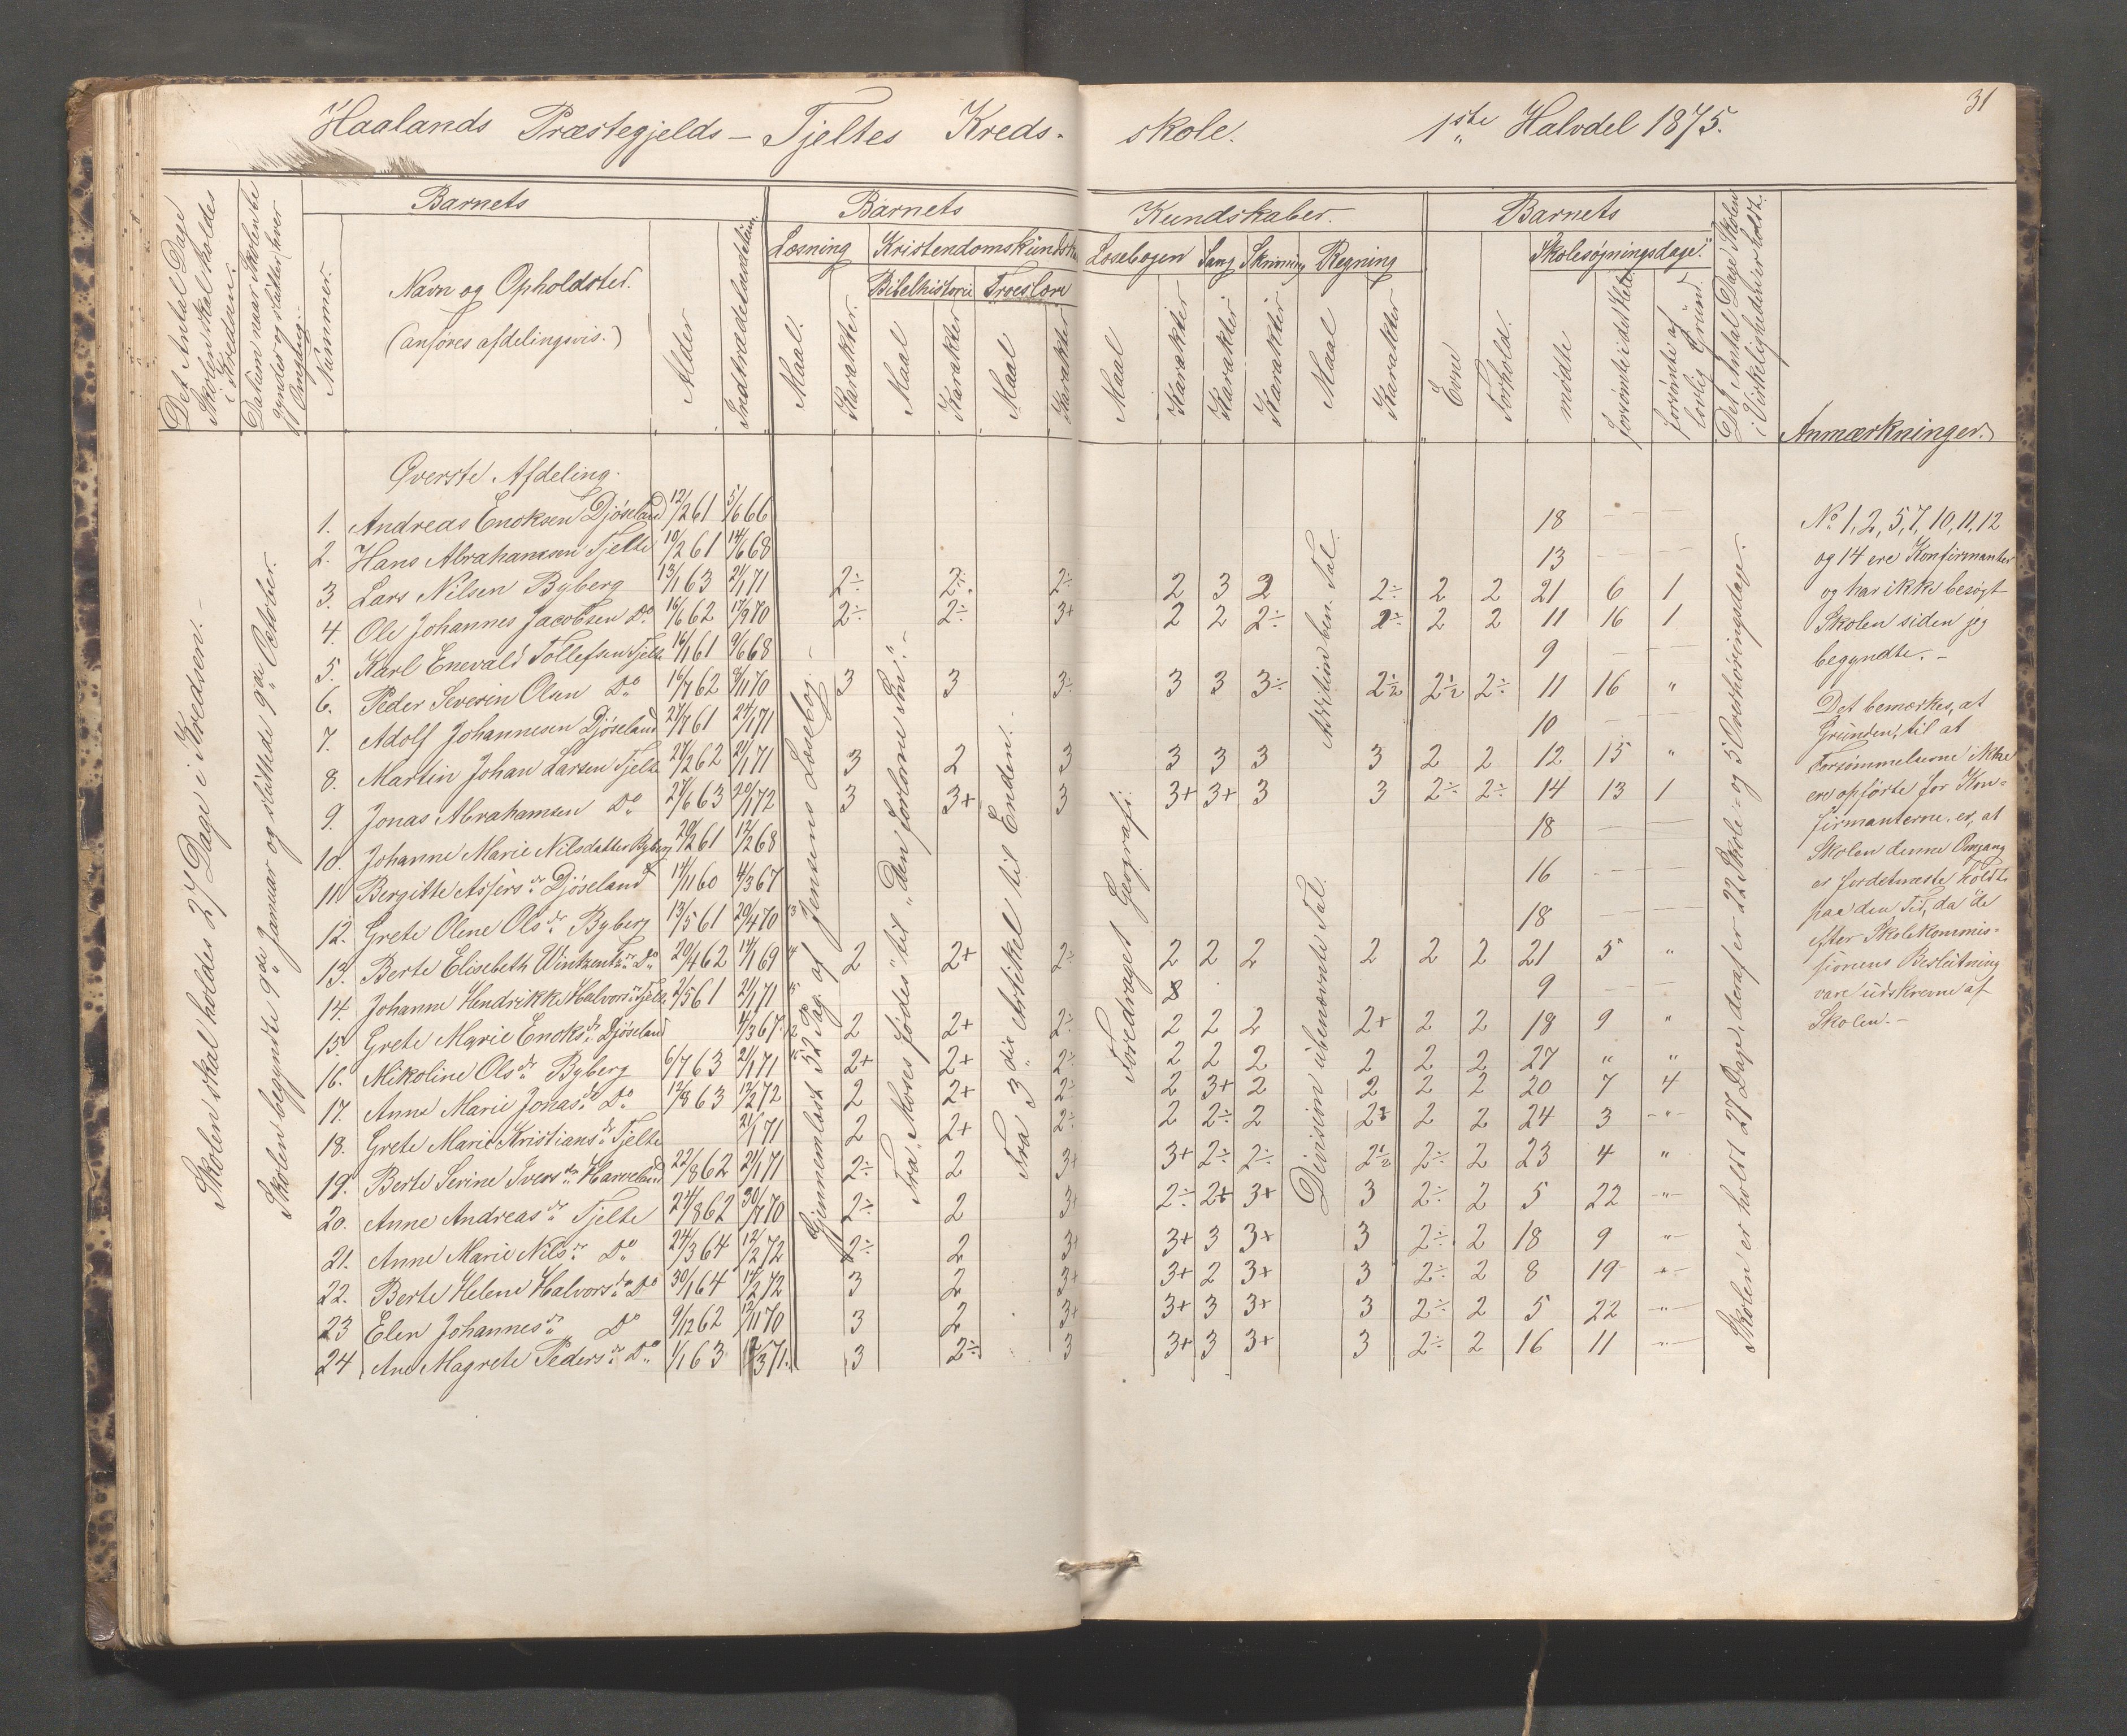 31
Haalands Præstegjelds – Tjeltes Kreds- skole. 1ste Halvdel 1875.
Det Antal Dage Skolen skal holdes i Kredsen.
Datum naar Skolen begynder og slutter hver Omgang.
Barnets
Nummer.
Navn og Opholdsted.
(anføres afdelingsvis.)
Alder
Indtrædelsesdatum.
Barnets Kundskaber.
Læsning
Maal.
Karakter.
Kristendomskundskab
Bibelhistorie
Maal
Karakter
Troeslære
Maal
Karakter
Læsebogen
Maal
Karakter
Sang
Karakter
Skrivning
Karakter
Regning
Maal
Karakter
Barnets
Evne
Forhold.
Skolesøgningsdage.
mødte
forsømte i det Hele
forsømte af lovlig Grund.
Det Antal Dage Skolen i Virkeligheden er holdt.
Anmærkninger.
Skolen skal holdes 27 Dage i Kredsen.–
Skolen begyndte 9de Januar og sluttede 9de October.
Gjennemlæst 52 Pag. af Jensens Læsebog.–
Fra „Moses fødes" til „Den forlorne Søn".–
Fra 3die Artikel til Enden.
Foredraget Geografi.
Addition ben. Tal.
Division i benævnte Tal.
Skolen er holdt 27 Dage, deraf er 22 Skole- og 5 Overhøringsdage.
Øverste Afdeling.
1. Andreas Enoksen Djøseland 12/2 61 5/6 66 18 — — —
2. Hans Abrahamsen Tjelte 10/2 61 14/6 68 13 — — —
3. Lars Nilsen Byberg 13/1 63 21/1 71 2÷ 2÷ 2÷ 2 3 2 2÷ 2 2 21 6 1
4. Ole Johannes Jacobsen Do 16/6 62 17/9 70 2÷ 2÷ 3+ 2 2 2÷ 2÷ 2 2 11 16 1
5. Karl Enevald Tollefsen Tjelte 16/1 61 9/6 68 9 — — —
6. Peder Severin Olsen Do 16/7 62 9/11 70 3 3 3÷ 3 3 3÷ 2½ 2½ 2÷ 11 16 "
7. Adolf Johannesen Djøseland 27/7 61 24/1 71 10 — — —
8. Martin Johan Larsen Tjelte 27/2 62 21/1 71 3 2 3 3 3 3 3 2 2 12 15 "
9. Jonas Abrahamsen Do 27/6 63 20/1 72 3 3+ 3 3+ 3+ 3 3 2÷ 2÷ 14 13 1
10. Johanne Marie Nilsdatter Byberg 20/2 61 12/2 68 18 — — —
11 Bergitte Assersdr Djøseland 14/11 60 4/3 67 16 — — —
12. Grete Olene Olsdr Byberg 13/5 61 20/4 70 18 — — —
13. Berte Elisebeth Wintzentsdr Do 20/4 62 14/1 69 2 2+ 2÷ 2 2 2 2 2 2 21 5 "
14. Johanne Hendrikke Halvorsdr Tjelte 2/5 61 21/1 71 9 — —
15. Grete Marie Enoksdr Djøseland 4/3 67 2 2+ 2÷ 2 2 2 2+ 2 2 18 9 "
16. Nikoline Olsdr Byberg 6/7 63 21/1 71 2+ 2+ 2÷ 2 2 2 2 2 2 27 " "
17. Anne Marie Jonasdr Do 12/8 63 12/2 72 2 2+ 2÷ 2 3+ 2 2 2 2 20 7 4
18. Grete Marie Kristiansdr Tjelte 21/1 71 2 2+ 2÷ 2 2÷ 2 2÷ 2 2 24 3 "
19. Berte Serine Iversdr Harveland 22/8 62 21/1 71 2÷ 2 3+ 3+ 2÷ 2÷ 2½ 2÷ 2 23 4 "
20. Anne Andreasdr Tjelte 24/8 62 30/7 70 2÷ 2 3+ 2÷ 2+ 3+ 3 2÷ 2 5 22 "
21. Anne Marie Nilsdr Do 24/3 64 12/2 72 2÷ 2 3+ 3+ 3 3+ 3 2÷ 2 18 9 "
22. Berte Helene Halvorsdr Do 30/1 64 14/2 72 3 2 3+ 3+ 2 3+ 3 2÷ 2 8 19 "
23 Elen Johannesdr Do 9/12 62 12/11 70 3 2 3+ 3+ 3 3+ 3 2÷ 2 5 22 "
24 Ane Magrete Pedersdr Do 1/1 63 /3 71. 3 2÷ 3 3+ 3 3+ 3 2÷ 2 16 11 "
No 1, 2, 5, 7, 10, 11, 12
og 14 ere Konfirmanter
og har ikke besøgt
Skolen siden jeg
begyndte.–
Det bemærkes, at
Grunden, til at
Forsømmelserne ikke
ere opførte for Kon-
firmanterne, er, at
Skolen denne Omgang
er fordetmeste holdt
paa den Tid, da de
efter Skolekommis-
sionens Beslutning
vare udskrevne af
Skolen.–